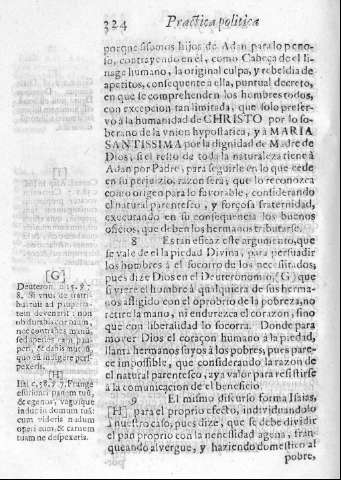 324 Practica politica
porque si somos hijos de Adan para lo peno-
so, contrayendo en èl, como Cabeça de el li-
nage humano, la original culpa, y rebeldia de
apetitos, consequente a ella, puntual decreto,
en que se comprehenden los hombres todos,
con excepcion tan limitada, que solo preser-
vò a la humanidad de CHRISTO por lo so-
berano de la vnion hypostatica, y à MARIA
SANTISSIMA por la dignidad de Madre de
Dios, si el resto de toda la naturaleza tiene à
Adan por Padre, para seguirle en lo que cede
en su perjuizio, razon serà, que lo reconozca
como origen para lo favorable, considerando
el natural parentesco, y forçosa fraternidad,
executando en su consequencia los buenos
oficios, que deben los hermanos tributarse.
8 Es tan eficaz este argumento, que
se vale de el la piedad Divina, para persuadir
los hombres à el socorro de los necessitados,
pues dize Dios en el Deuteronomio, [G] que
si viere el hombre à qualquiera de sus herma-
nos afligido con el oprobrio de la pobreza, no
retire la mano, ni endurezca el corazon, sino
que con liberalidad lo socorra. Donde para
mover Dios el coraçon humano à la piedad,
llama hermanos suyos à los pobres, pues pare-
ce impossible, que considerando la razon de
el natural parentesco, aya valor para resistirse
à la comunicacion de el beneficio.
9 El mismo discurso forma Isaias,
[H] para el proprio efecto, individuandolo
à nuestro caso, pues dize, que se debe dividir
el pan proprio con la necessidad agena, fran-
queando al vergue, y haziendo domestico al
pobre,
[G]
Deuteron. c. 15. v. 7.
8. Si vnus de fratri-
bus tuis ad pauperta-
tem devenerit: non
obdurabis cor tuum,
nec contrahes manũ,
sed aperies eam pau-
peri, & dabis mutuũ,
quo eũ indigere pers-
pexeris.
[H]
Isai. c. 58. v. 7. Frange
esurienti panem tuũ,
& egenos, vagosque
induc in domum tuã:
cum videris nudum
operi eum, & carnem
tuam ne despexeris.